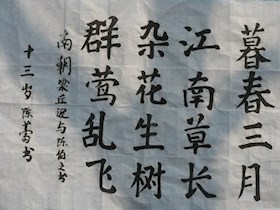 暮春三月
江南草长
杂花生树
群莺乱飞
南朝梁丘迟与陈伯之书
十三岁陈莺书